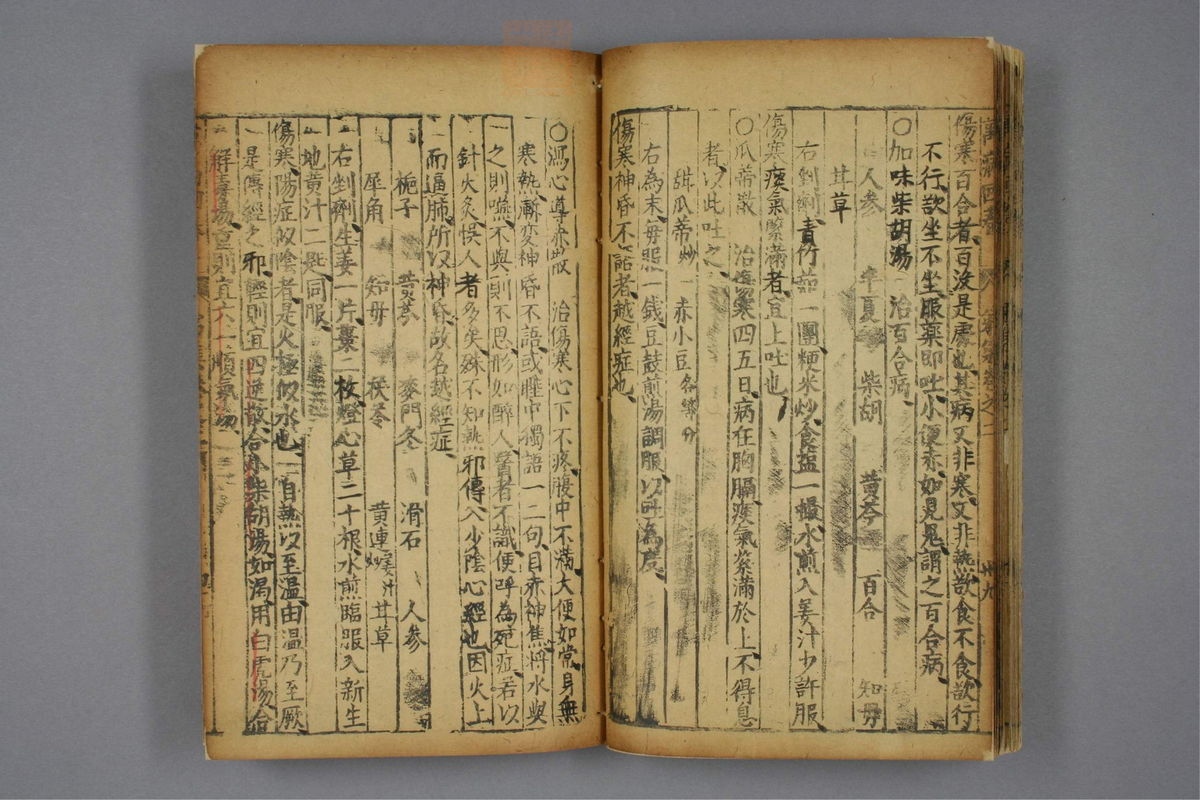 傷寒百合者百沒是處也其病又非寒又非熱欲食不食欲行
不行欲坐不坐服藥即吐小便赤如見鬼謂之百合病
〇加味柴胡湯　治百合病
人參　半夏　柴胡　黃芩　百合　知毋
甘草
右剉劑青竹茹一團粳米炒食盐一撮水煎入姜汁少許服
傷寒痰氣緊滿者宜上吐也
〇瓜蒂散　治傷寒四五日病在胸膈痰氣緊滿於上不得息
者以此吐之
甜瓜蒂炒　赤小豆各等分
右為末每服一錢豆鼓煎湯調服以吐為度
傷寒神昏不語者越經症也
〇瀉心導赤散　治傷寒心下不疼腹中不滿大便如常身無
寒熱漸變神昏不語或睡中獨語一二句目赤神焦將水與
之則嚥不與則不思形如醉人醫者不識便呼為死症若以
針火灸悞人者多矣殊不知熱邪傳入少陰心經也因火上
而逼肺所以神昏故名越經症
梔子　黃芩　麥門冬　滑石　人參
犀角　知毋　茯苓　黃連姜汁炒　甘草
右剉劑生姜一片棗二枚燈心草二十根水煎臨服入新生
地黃汁二匙同服
傷寒陽症似陰者是火極似水也一自熱以至温由温乃至厥
是傳經之邪輕則宜四逆散合小柴胡湯如渴用白虎湯合
解毒湯重則宜六一順氣湯